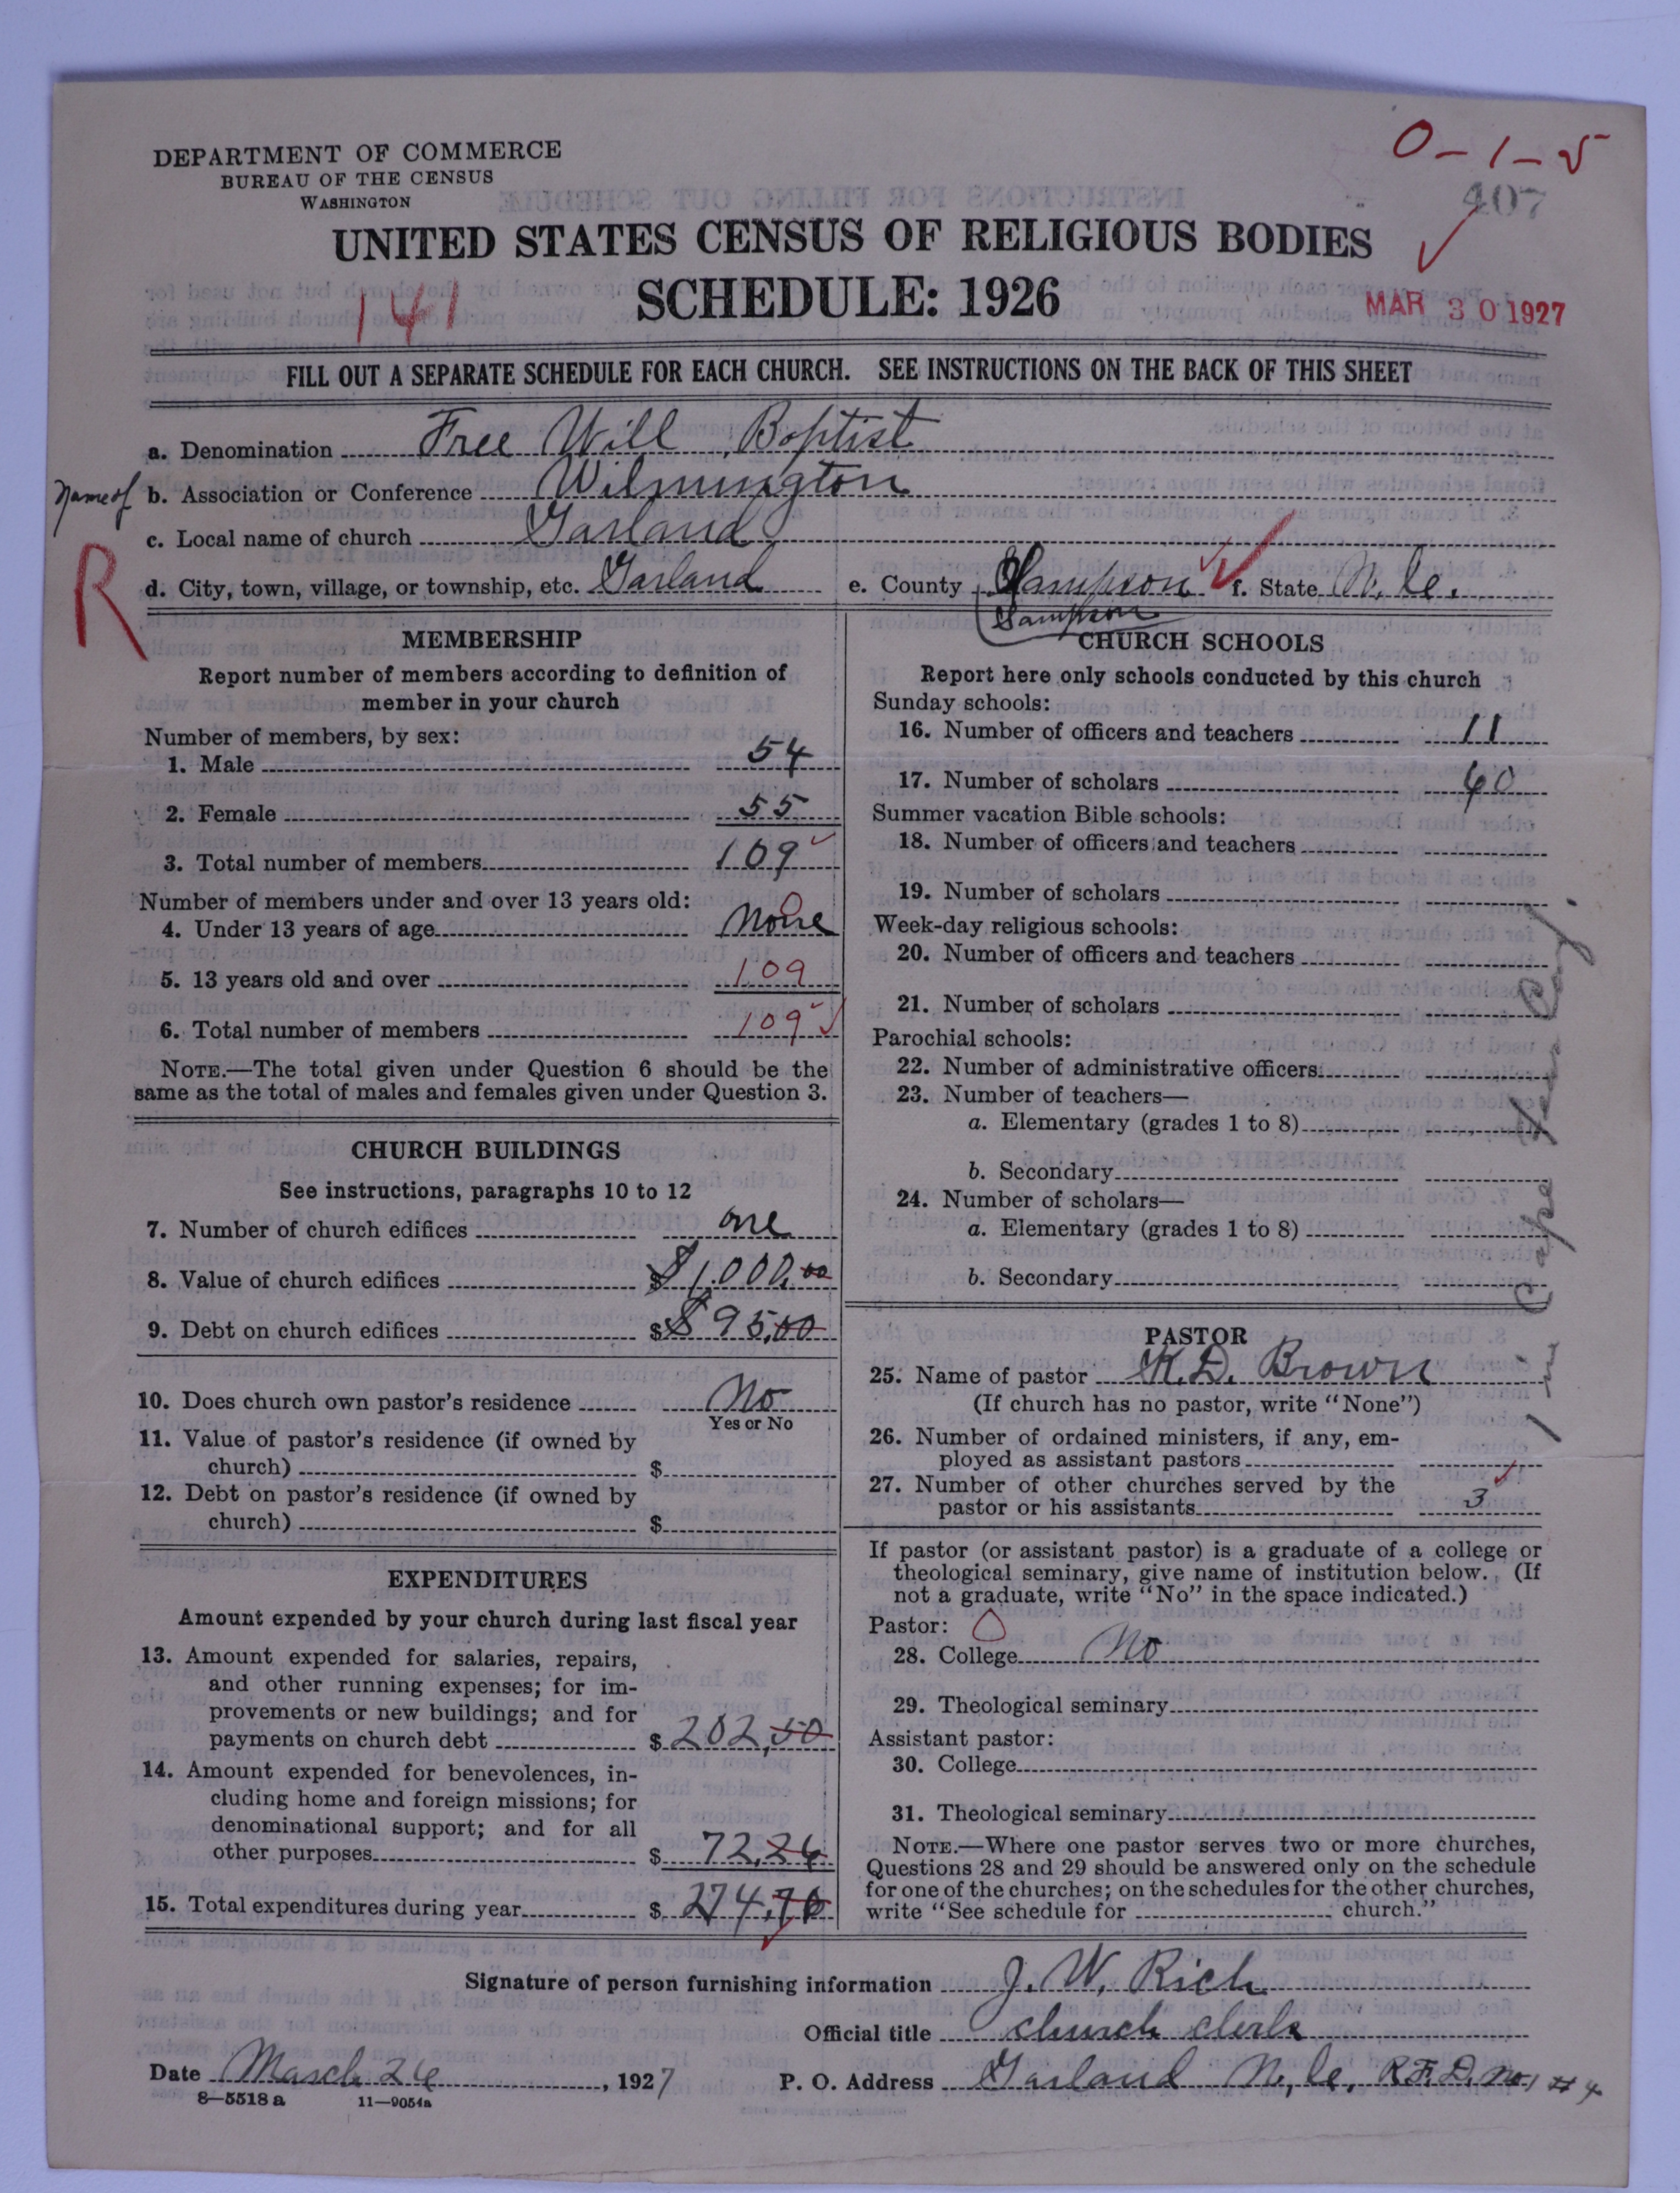 DEPARTMENT OF COMMERCE
BUREAU OF THE CENSUS
WASHINGTON
0-1-5
407
UNITED STATES CENSUS OF RELIGIOUS BODIES
SCHEDULE: 1926
141
MAR 30 1927
FILL OUT A SEPARATE SCHEDULE FOR EACH CHURCH. SEE INSTRUCTIONS ON THE BACK OF THIS SHEET
a. Denomination Free Will Baptist
Name of b. Association or Conference Wilmington
c. Local name of church Garland
R
d. City, town, village, or township, etc. Garland e. County Sampson f. State N.C.
Sampson
MEMBERSHIP
Report number of members according to definition of
member in your church
Number of members, by sex:
1. Male 54
2. Female 55
3. Total number of members 109
Number of members under and over 13 years old:
4. Under 13 years of age None 0
5. 13 years old and over 109
6. Total number of members 109
NOTE.—The total given under Question 6 should be the
same as the total of males and females given under Question 3.
CHURCH BUILDINGS
See instructions, paragraphs 10 to 12
7. Number of church edifices one
8. Value of church edifices $ $1,000.00
9. Debt on church edifices $ $95.00
10. Does church own pastor's residence No
Yes or No
11. Value of pastor's residence (if owned by
church) $
12. Debt on pastor's residence (if owned by
church) $
EXPENDITURES
Amount expended by your church during last fiscal year
13. Amount expended for salaries, repairs,
and other running expenses; for im-
provements or new buildings; and for
payments on church debt $ 202.50
14. Amount expended for benevolences, in-
cluding home and foreign missions; for
denominational support; and for all
other purposes $ 72.26
15. Total expenditures during year $ 274.76
CHURCH SCHOOLS
Report here only schools conducted by this church
Sunday schools:
16. Number of officers and teachers 11
17. Number of scholars 60
Summer vacation Bible schools:
18. Number of officers and teachers
19. Number of scholars
Week-day religious schools:
20. Number of officers and teachers
21. Number of scholars
Parochial schools:
22. Number of administrative officers
23. Number of teachers—
a. Elementary (grades 1 to 8)
b. Secondary
24. Number of scholars—
a. Elementary (grades 1 to 8)
b. Secondary
PASTOR
25. Name of pastor Brown
(If church has no pastor, write "None")
26. Number of ordained ministers, if any, em-
ployed as assistant pastors
27. Number of other churches served by the
pastor or his assistants 3
If pastor (or assistant pastor) is a graduate of a college or
theological seminary, give name of institution below. (If
not a graduate, write "No" in the space indicated.)
Pastor: 0
28. College No
29. Theological seminary
Assistant pastor:
30. College
31. Theological seminary
NOTE.—Where one pastor serves two or more churches,
Questions 28 and 29 should be answered only on the schedule
for one of the churches; on the schedules for the other churches,
write "See schedule for church."
Signature of person furnishing information J. W. Rich
Official title church clerk
Date March 26, 1927 P. O. Address Garland N.C. R.F.D. No. # 4
8—5518 a 11—9054a